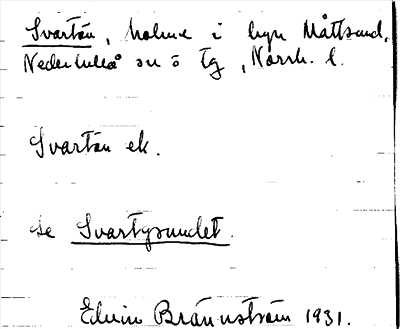 Svartön, holme i byn Måttsund,
Nederluleå sn o tg, Norrb. l.
Svartön ek.
se Svartösundet.
Edvin Brännström 1931.